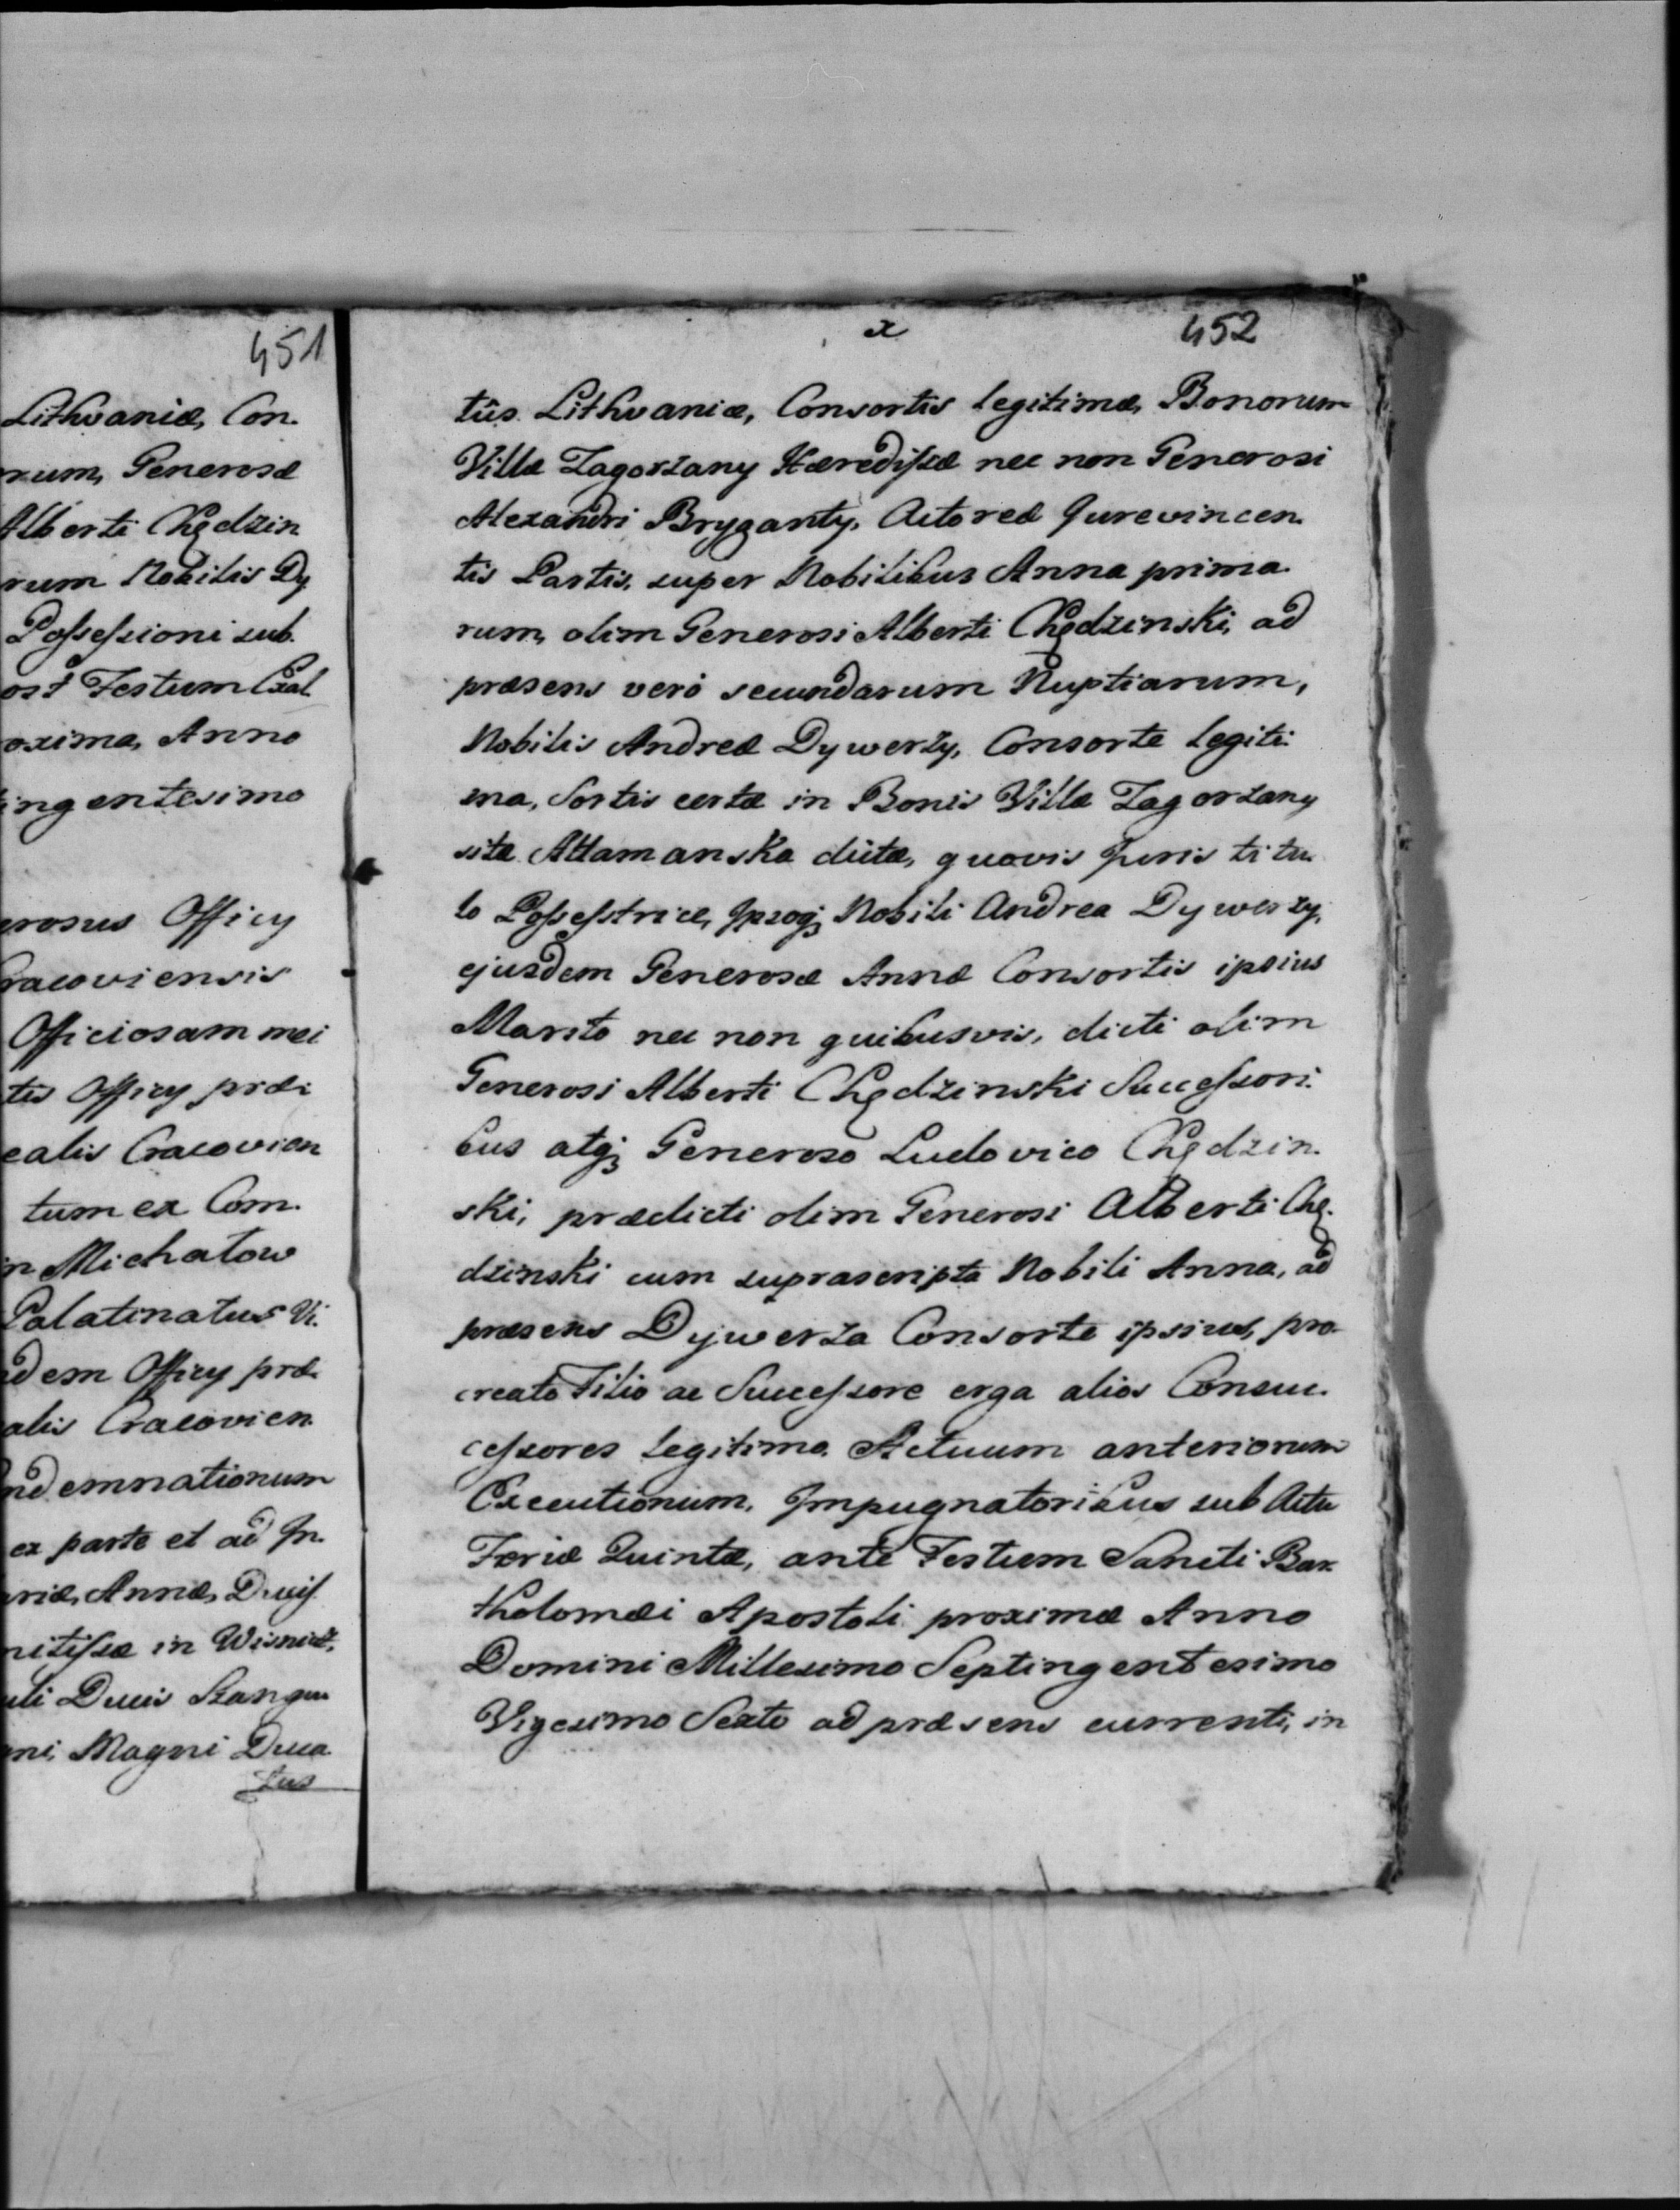 451
Lithvaniæ, Con.
rum, Generosæ
Alberti Chędzin
rum Nobilis Dy
Possessioni sub.
ost Festum Exal
oxima, Anno
tingentesimo
erosus Officy
Cracoviensis
Officiosam mei
tis Officy præ
ealis Cracovien
tum ex Com.
in Michałow
Palatinatus Vi.
dem Officy præ
alis Cracovien
ndemnationum
ex parte et ad In.
ariæ, Annæ, Ducis
nitissæ in Wisnicz,
uli Ducis Sangu
ani, Magni Duca
tus
x 452
tûs Lithvaniæ, Consortis legitimæ, Bonorum
Villæ Zagorzany Hæredissæ nec non Generosi
Alexandri Bryganty, Actoreæ Jurevincen.
tis Partis, super Nobilibus Anna prima.
rum, olim Generosi Alberti Chędzinski, ad
præsens verò secundarum Nuptiarum,
Nobilis Andreæ Dywerzy, Consorte legiti.
ma, Sortis certæ in Bonis Villæ Zagorzany
sitæ Attamanska dictæ, quovis Juris titu
lo Possesstrice, Ipsoq; Nobili Andrea Dywerzy,
ejusdem Generosæ Annæ Consortis ipsius
Marito nec non quibusvis, dicti olim
Generosi Alberti Chędzinski Successori.
bus atq; Generoso Ludovico Chędzin.
ski, prædicti olim Generosi Alberti Chę.
dzinski cum suprascripta Nobili Anna, ad
præsens Dywerza Consorte ipsius, pro.
creato Filio ac Successore erga alios Consuc.
cessores legitimo. Actuum anteriorum
Executionum, Impugnatoribus sub Actu
Feriæ Quintæ, ante Festum Sancti Bar.
tholomæi Apostoli proximæ Anno
Domini Millesimo Septingentesimo
Vigesimo Sexto ad præsens currenti, in